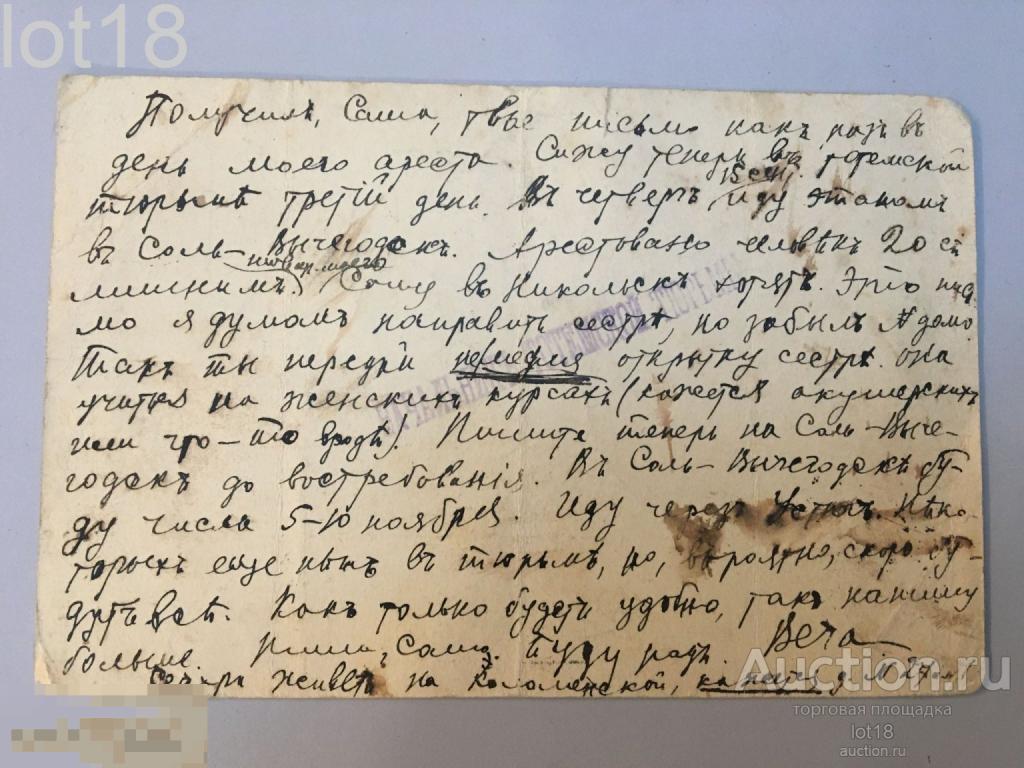 lot18
Получилъ, Саша, твое письмо какъ разъ въ
день моего ареста. Сижу теперь въ тотемской
тюрьмѣ третій день. Въ четвергъ иду этапомъ
въ Соль-Вычегодскъ. Арестовано человѣкъ 20 съ
лишнимъ. Сашу въ Никольскъ хотятъ. Это пись
мо я думалъ направить сестрѣ, но забылъ № дома
Такъ ты передай открытку сестрѣ. она
учится на женскихъ курсахъ (кажется акушерскихъ
или что-то вродѣ). Пишите теперь на Соль-Выче-
годскъ до востребованія. Въ Соль-Вычегодскѣ бу-
ду числа 5-10 ноября. Иду черезъ Устюгъ. Нѣко-
торыхъ еще нѣтъ въ тюрьмѣ, но, вѣроятно, скоро бу-
дутъ всѣ. Какъ только будетъ удобно, такъ напишу
больше. Пиши, Саша. Буду радъ.
Сестра живетъ на Коломенской, кажется д. № 27
Auction.ru
торговая площадка
lot18
auction.ru